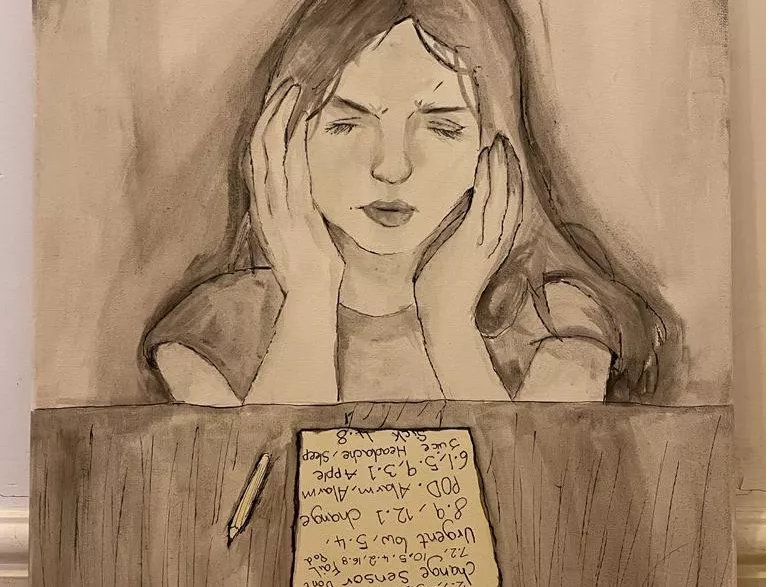 Change Sensor Dont
Fail
7.2, 10.5, 4.2, 16.8 Pod
Urgent low, 5.4,
8.9, 12.1 change
POD. Alarm, Alarm
6.1, 5.9, 3.1 Apple
Juice Headache, Sleep
Sick 4.8